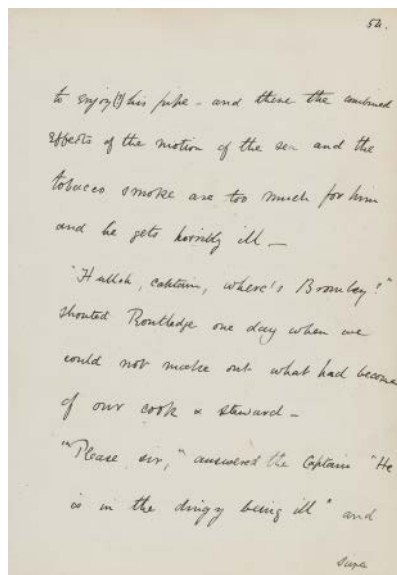 54.
to enjoy(?) his pipe - and there the combined
effects of the motion of the sea and the
tobacco smoke are too much for him
and he gets horribly ill —
"Halloh, captain, where's Bromley?"
shouted Routledge one day when we
could not make out what had become
of our cook & steward -
"Please sir," answered the Captain "He
is in the dingy being ill" and